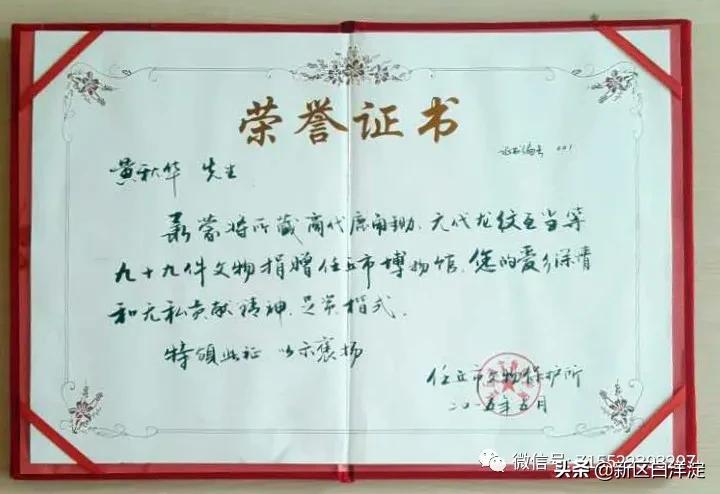 荣誉证书
证书编号 001
黄秋华 先生
承蒙将所藏商代鹿角锄、元代龙纹瓦当等
九十九件文物捐赠任丘市博物馆,您的爱乡深情
和无私贡献精神,足常楷式。
特颁此证 以示褒扬
任丘市文物保护所
二〇一五年五月
微信号:
头条@新区白洋淀